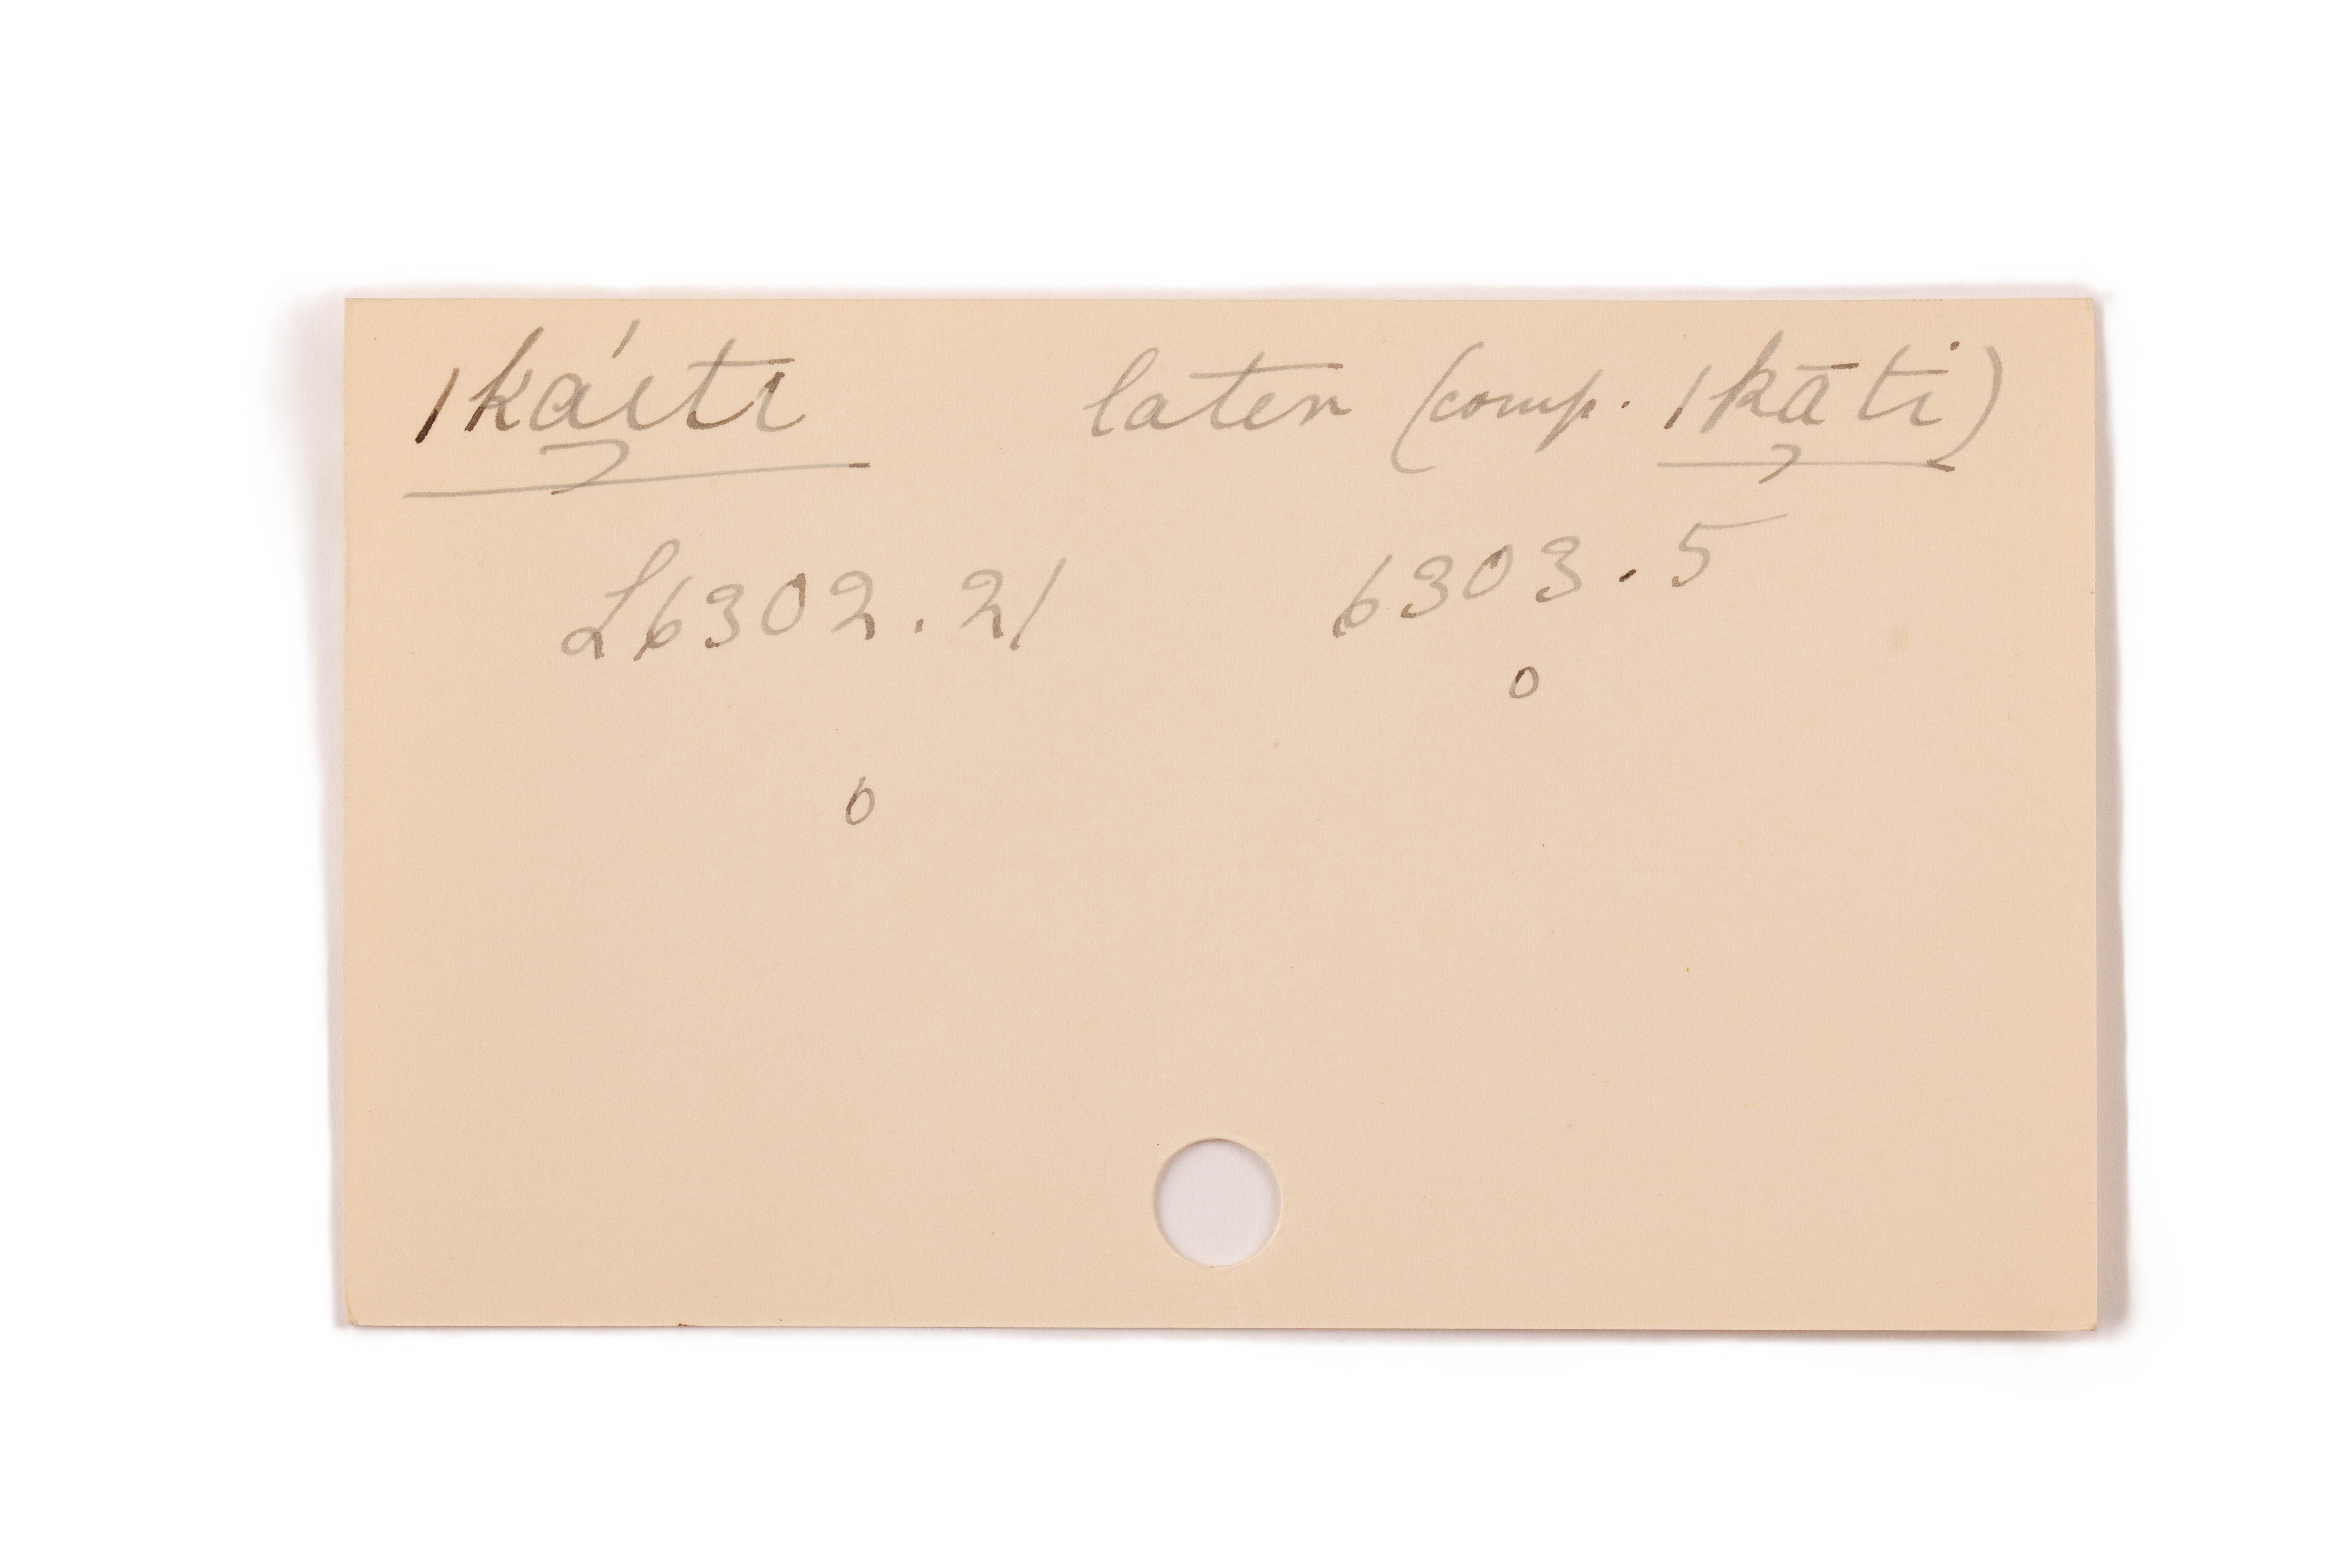 /káɩtɩ later (comp. /kāti)
L6302.21 6303.5
o
o